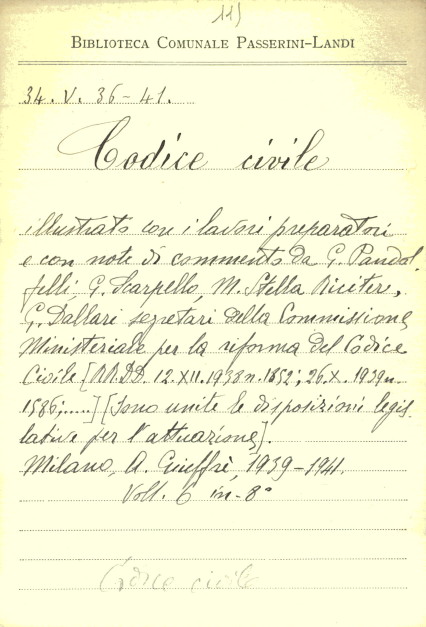 115
BIBLIOTECA COMUNALE PASSERINI-LANDI
34. V. 36-41.
Codice civile
illustrato con i lavori preparatori
e con note di commento da G. Pandol-
felli, G. Scarpello, M. Stella Richter,
G. Dallari segretari della Commissione
Ministeriale per la riforma del Codice
Civile [RR.DD. 12.XII.1938 n. 1852; 26.X.1939 n.
1586;.....] [Sono unite le disposizioni legis-
lative per l'attuazione].
Milano, A. Giuffrè, 1939-1941.
Voll. 6 in-8°
Codice civile